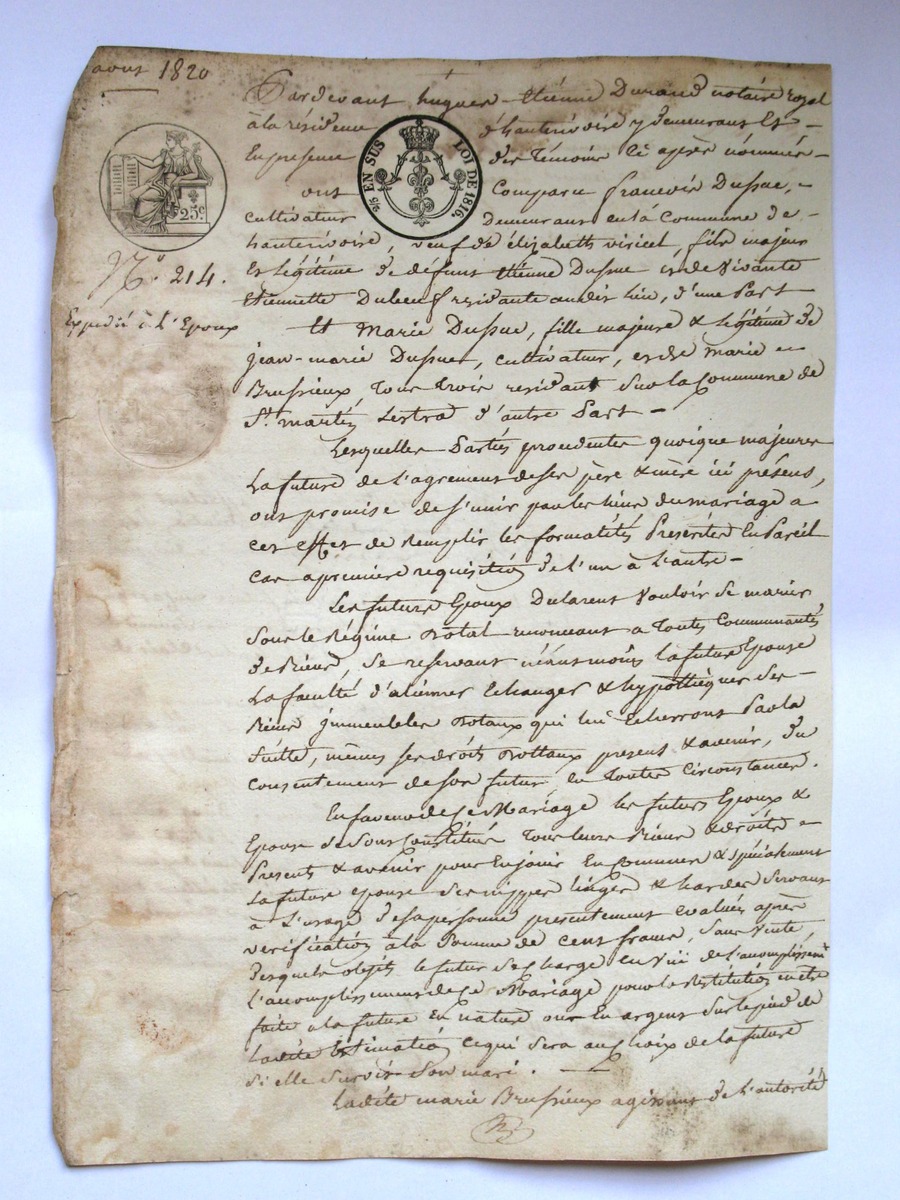 aout 1820
Pardevant hugues Etienne Durand notaire royal
à la résidence d'hauterivoire y demeurant Et
En presence des Témoins Ci après nommés
ont Comparu francois Dussuc,
cultivateur Demeurant en la Commune de
hauterivoire, veuf de élizabeth viricel, fils majeur
Et légitime de défunt Etienne Dussuc et de Vivante
Etiennette Dubeuf residante audit lieu, d'une Part
Et Marie Dussuc, fille majeure & légitime de
jean-marie Dussuc, cultivateur, et de Marie
Brussieux, Tous trois residant sur la Commune de
St. martin Lestra d'autre Part
Lesquelles Parties procedentes quoique majeures
La future de l'agrement de ses père & mère ici présens,
ont promise de s'unir par les liens du mariage a
cet effet de Remplir les formalités Presentes En Pareil
cas a premiere requisition de l'un à L'autre
Les futurs Epoux Declarent Vouloir se marier
Sous le Régime Dotal renoncant a Toutes Communautés
de Biens, se reservant néanmoins la future Epouse
La faculté d'aliener Echanger & hypothéquer ses
Biens jmmeubles dotaux qui lui Echerront Par la
Suite, mêmes ses droits dottaux present & avenir, du
consentement de son futur en Toutes Circonstances.
En faveur de Ce Mariage les futurs Epoux &
Epouse se sont Constitués Tous leurs Biens & droits
Presents & avenir pour En jouir En Commun & spécialement
La future epouse ses nippes linges & hardes servant
à L'usage de sa personne presentement evalués après
verification à la Somme de Cent francs, Sans Vente
desquels objets le futur se Charge en Vüe de l'acomplissemt
l'acomplissement de Ce Mariage pour la Restitution en etre
faite a la future En nature ou En argent sur le pied de
Ladite Estimation ce qui sera au choix de la future
Si elle survit son mari.
Ladite marie Brussieux agissant de L'autorité
25 EN SUS
LOI DE 1816
25c
No. 214.
Expedié à L'Epoux